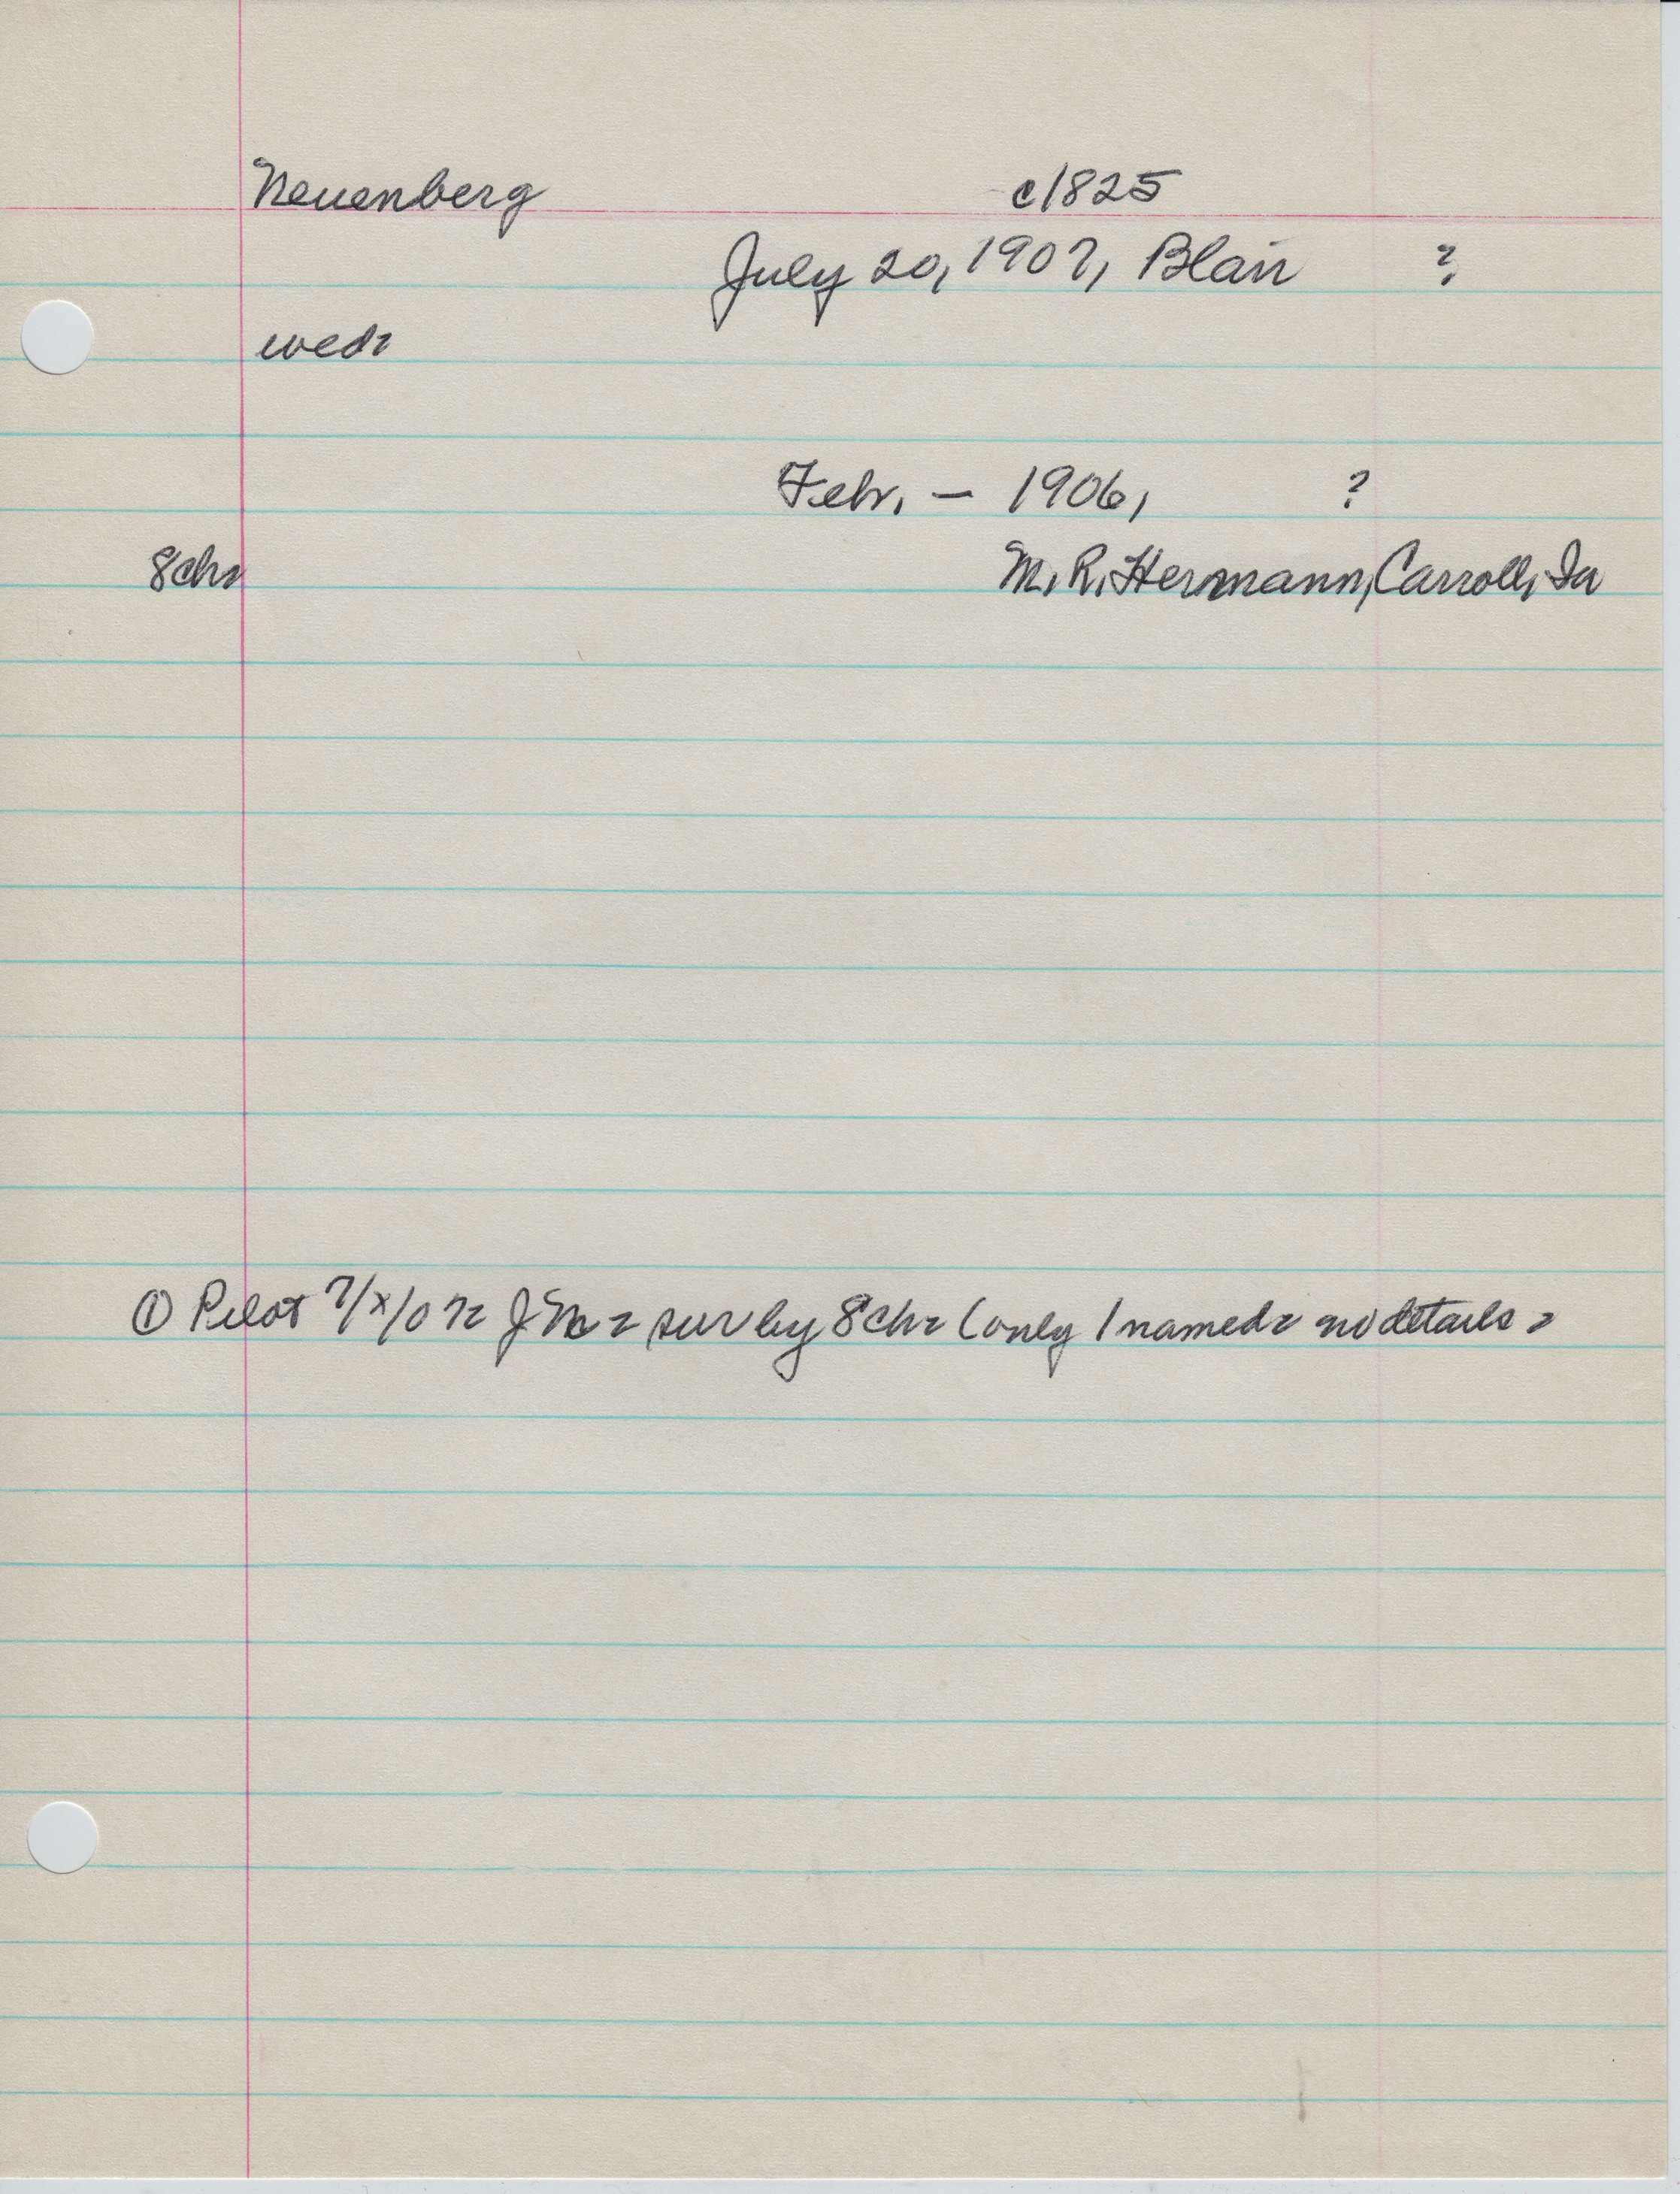 Neuenberg c1825
July 20, 1907, Blair ?
wed=
Febr. - 1906, ?
8ch= M. R. Hermann, Carroll, Ia
① Pilot 7/x/07= J M= sur by 8ch= (only 1 named= no details=